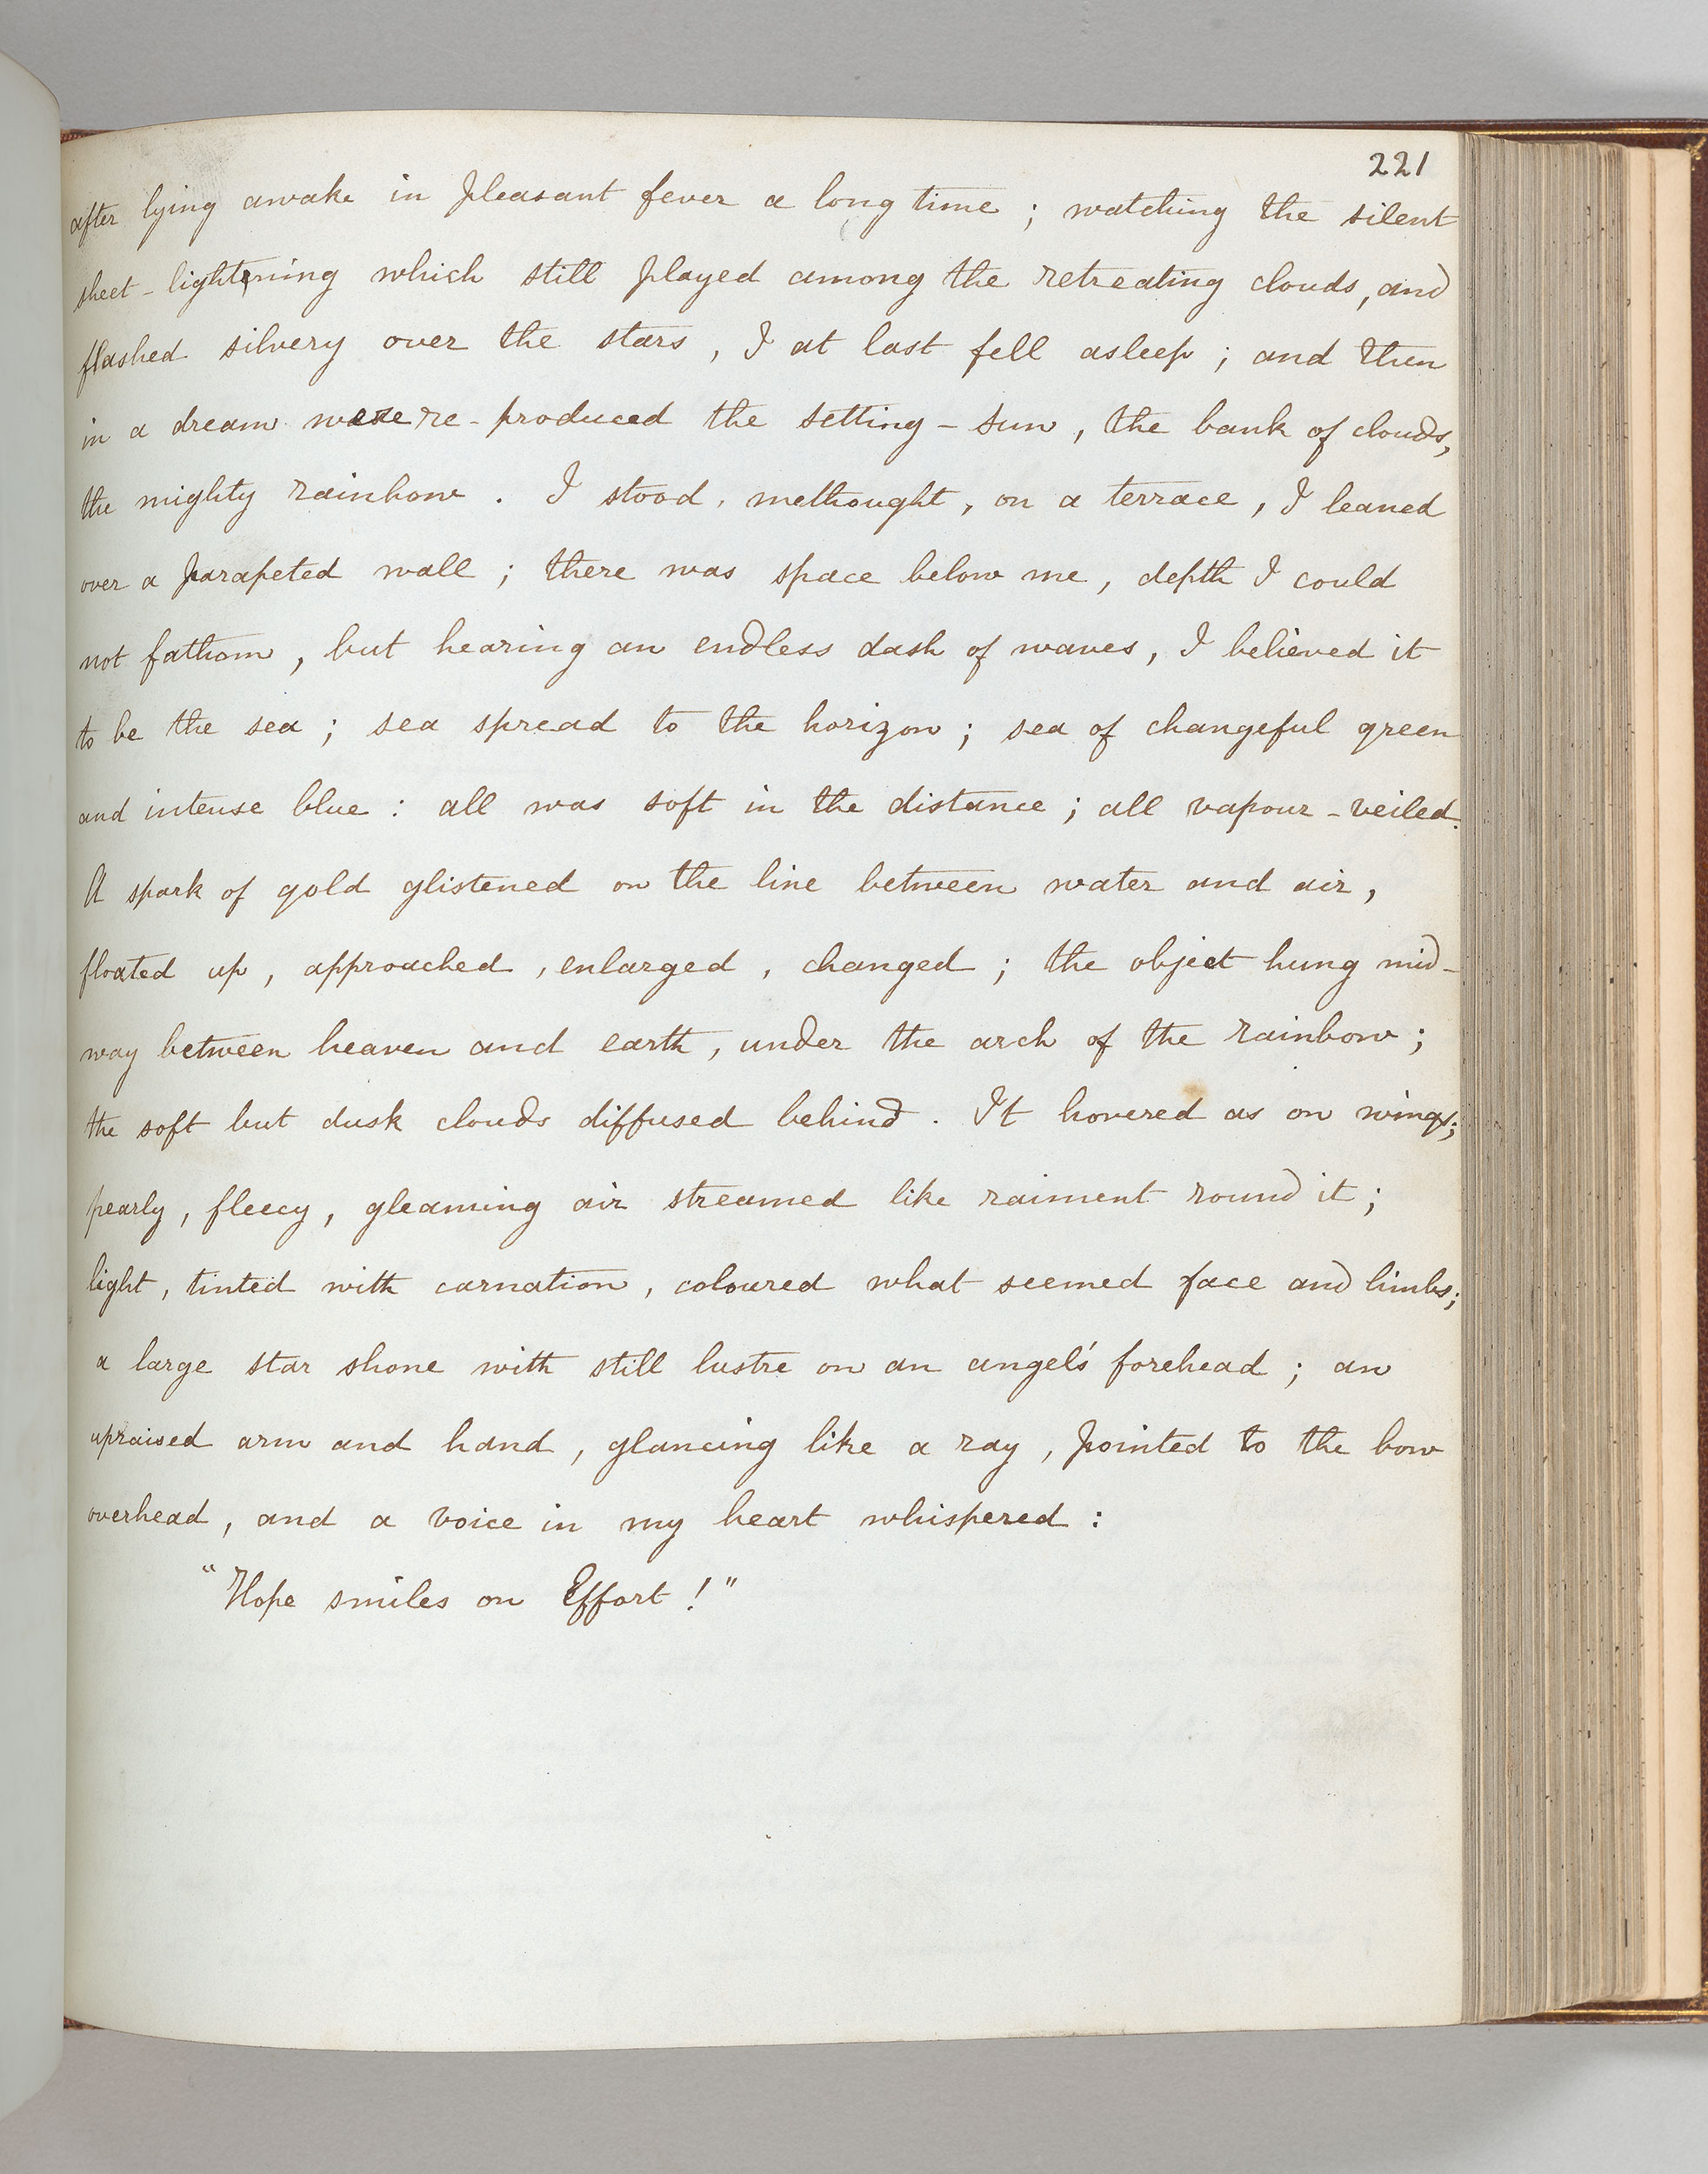 221
after lying awake in pleasant fever a long time ; watching the silent
sheet-lightning which still played among the retreating clouds, and
flashed silvery over the stars, I at last fell asleep ; and then
in a dream were re-produced the setting-sun, the bank of clouds,
the mighty rainbow. I stood, methought, on a terrace, I leaned
over a parapeted wall ; there was space below me, depth I could
not fathom, but hearing an endless dash of waves, I believed it
to be the sea ; sea spread to the horizon ; sea of changeful green
and intense blue : all was soft in the distance ; all vapour-veiled.
A spark of gold glistened on the line between water and air,
floated up, approached, enlarged, changed ; the object hung mid-
way between heaven and earth, under the arch of the rainbow ;
the soft but dusk clouds diffused behind. It hovered as on wings;
pearly, fleecy, gleaming air streamed like raiment round it ;
light, tinted with carnation, coloured what seemed face and limbs;
a large star shone with still lustre on an angel's forehead ; an
upraised arm and hand, glancing like a ray, pointed to the bow
overhead, and a voice in my heart whispered :
"Hope smiles on Effort !"